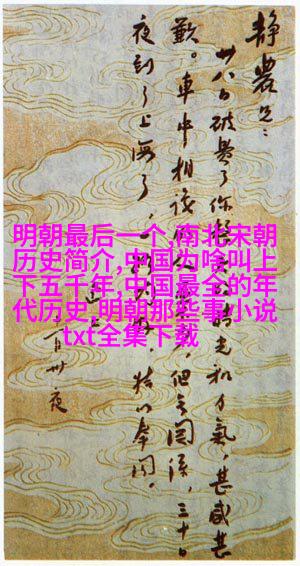 明朝最后一个,南北宋朝
历史简介,中国为啥叫上
下五千年,中国最全的年
代历史,明朝那些事小说
txt全集下载
静農兄:
廿八日破費了你時光和力氣,甚感甚
歉。車中相識的人但無関係,三十日
夜到了上海了,一路好,特以奉聞。
月卅夜